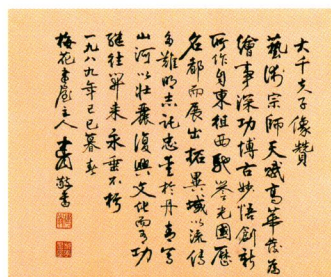 大千夫子像贊
藝術宗師天賦高華發為
繪事深功博古妙悟創新
所作自東徂西馳譽光國歷
名都而展出拓異域以流傳
多難明志託忠愛於丹青
山河以壯麗復興文化而有功
繼往開來永垂不朽
一九八九年己巳暮春
梅花書屋主人敬書